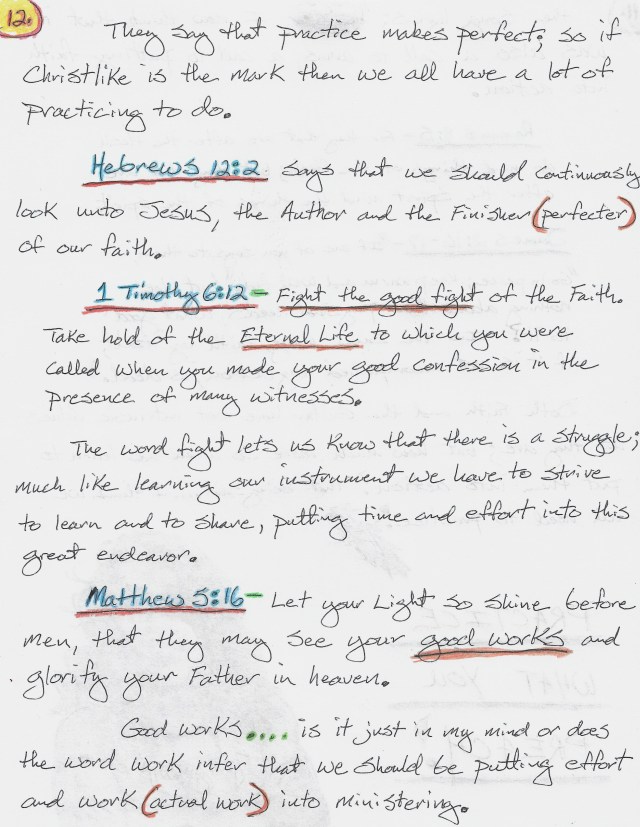 12.
They say that practice makes perfect; so if
Christlike is the mark then we all have a lot of
practicing to do.
Hebrews 12:2 says that we should continuously
look unto Jesus, the Author and the Finisher (perfecter)
of our faith.
1 Timothy 6:12 - Fight the good fight of the Faith.
Take hold of the Eternal Life to which you were
called when you made your good confession in the
presence of many witnesses.
The word fight lets us know that there is a struggle;
much like learning our instrument we have to strive
to learn and to share, putting time and effort into this
great endeavor.
Matthew 5:16 - Let your Light so shine before
men, that they may see your good works and
glorify your Father in heaven.
Good works.... is it just in my mind or does
the word work infer that we should be putting effort
and work (actual work) into ministering.